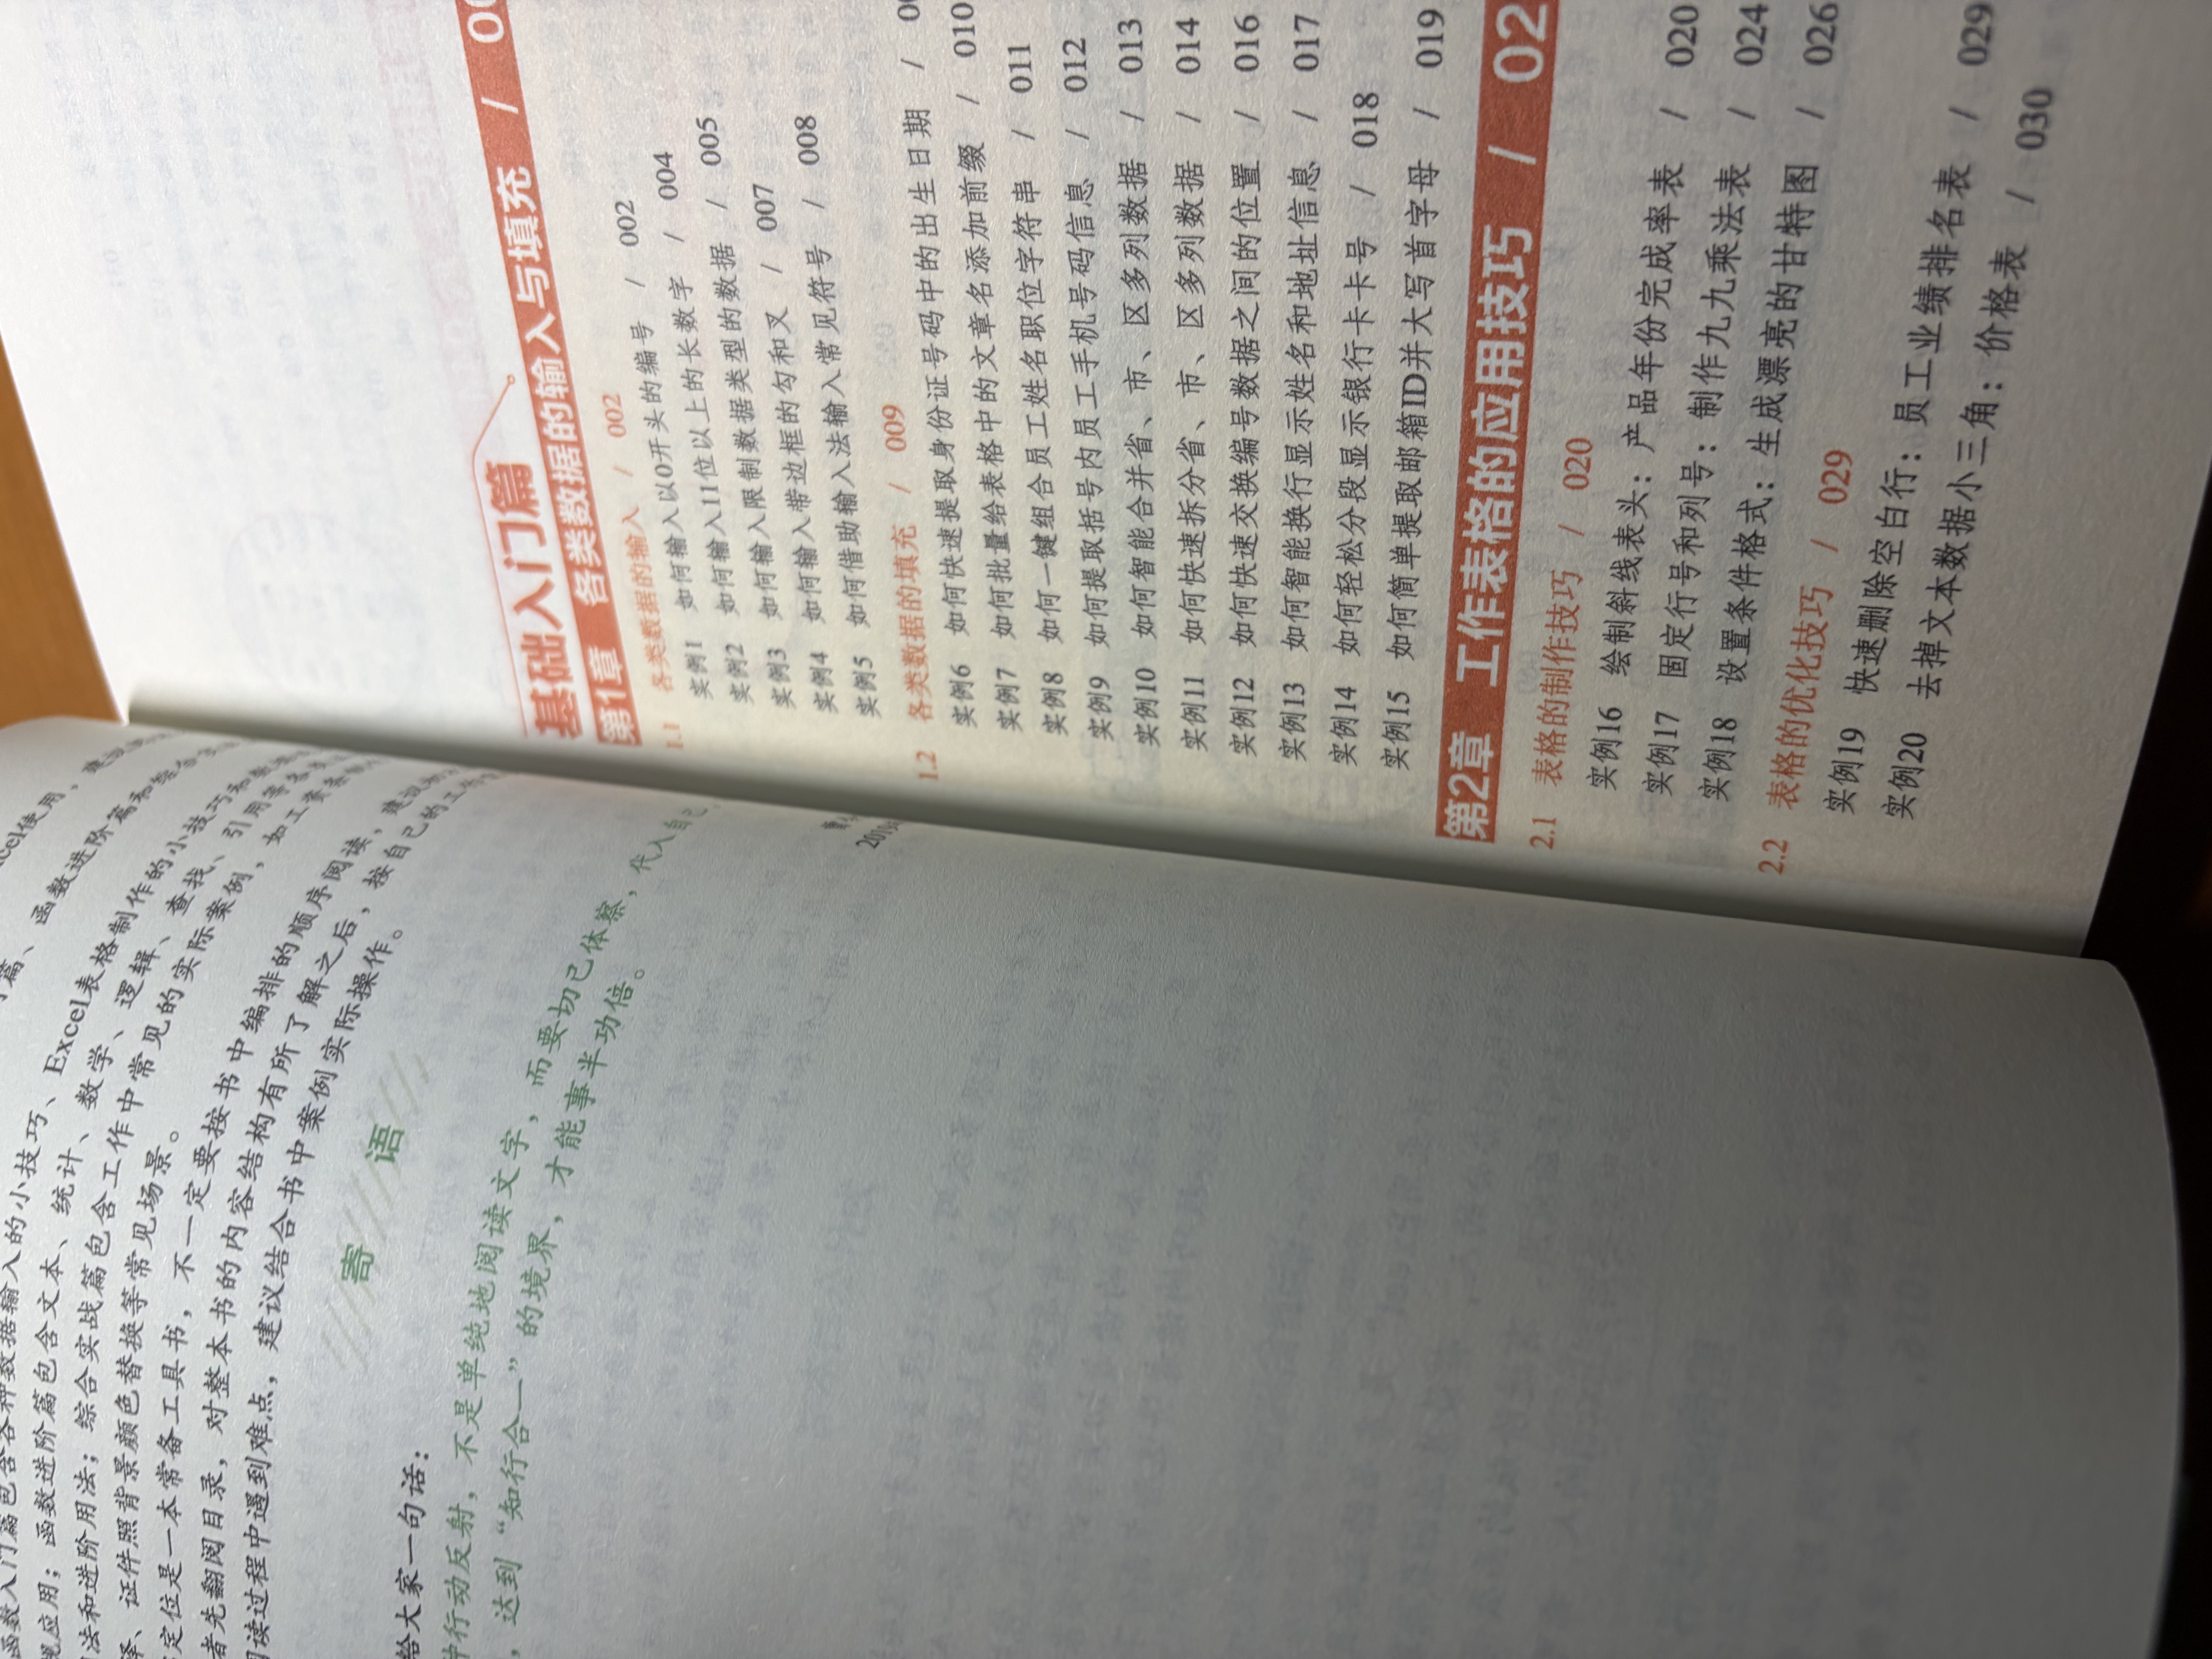 Excel使用，
篇、函数进阶篇和综合
函数入门篇包含各种数据输入的小技巧、Excel表格制作的小技巧和数据
规应用；函数进阶篇包含文本、统计、数学、逻辑、查找、引用等各
法和进阶用法；综合实战篇包含工作中常见的实际案例，如工资条
、证件照背景颜色替换等常见场景。
定位是一本常备工具书，不一定要按书中编排的顺序阅读，建议
者先翻阅目录，对整本书的内容结构有所了解之后，按自己的工作
阅读过程中遇到难点，建议结合书中案例实际操作。
寄语
给大家一句话：
种行动反射，不是单纯地阅读文字，而要切己体察，代入自己，
，达到“知行合一”的境界，才能事半功倍。
基础入门篇
第1章 各类数据的输入与填充 / 00
1.1 各类数据的输入 / 002
实例1 如何输入以0开头的编号 / 002
实例2 如何输入11位以上的长数字 / 004
实例3 如何输入限制数据类型的数据 / 005
实例4 如何输入带边框的勾和叉 / 007
实例5 如何借助输入法输入常见符号 / 008
1.2 各类数据的填充 / 009
实例6 如何快速提取身份证号码中的出生日期 / 00
实例7 如何批量给表格中的文章名添加前缀 / 010
实例8 如何一键组合员工姓名职位字符串 / 011
实例9 如何提取括号内员工手机号码信息 / 012
实例10 如何智能合并省、市、区多列数据 / 013
实例11 如何快速拆分省、市、区多列数据 / 014
实例12 如何快速交换编号数据之间的位置 / 016
实例13 如何智能换行显示姓名和地址信息 / 017
实例14 如何轻松分段显示银行卡卡号 / 018
实例15 如何简单提取邮箱ID并大写首字母 / 019
第2章 工作表格的应用技巧 / 02
2.1 表格的制作技巧 / 020
实例16 绘制斜线表头：产品年份完成率表 / 020
实例17 固定行号和列号：制作九九乘法表 / 024
实例18 设置条件格式：生成漂亮的甘特图 / 026
2.2 表格的优化技巧 / 029
实例19 快速删除空白行：员工业绩排名表 / 029
实例20 去掉文本数据小三角：价格表 / 030